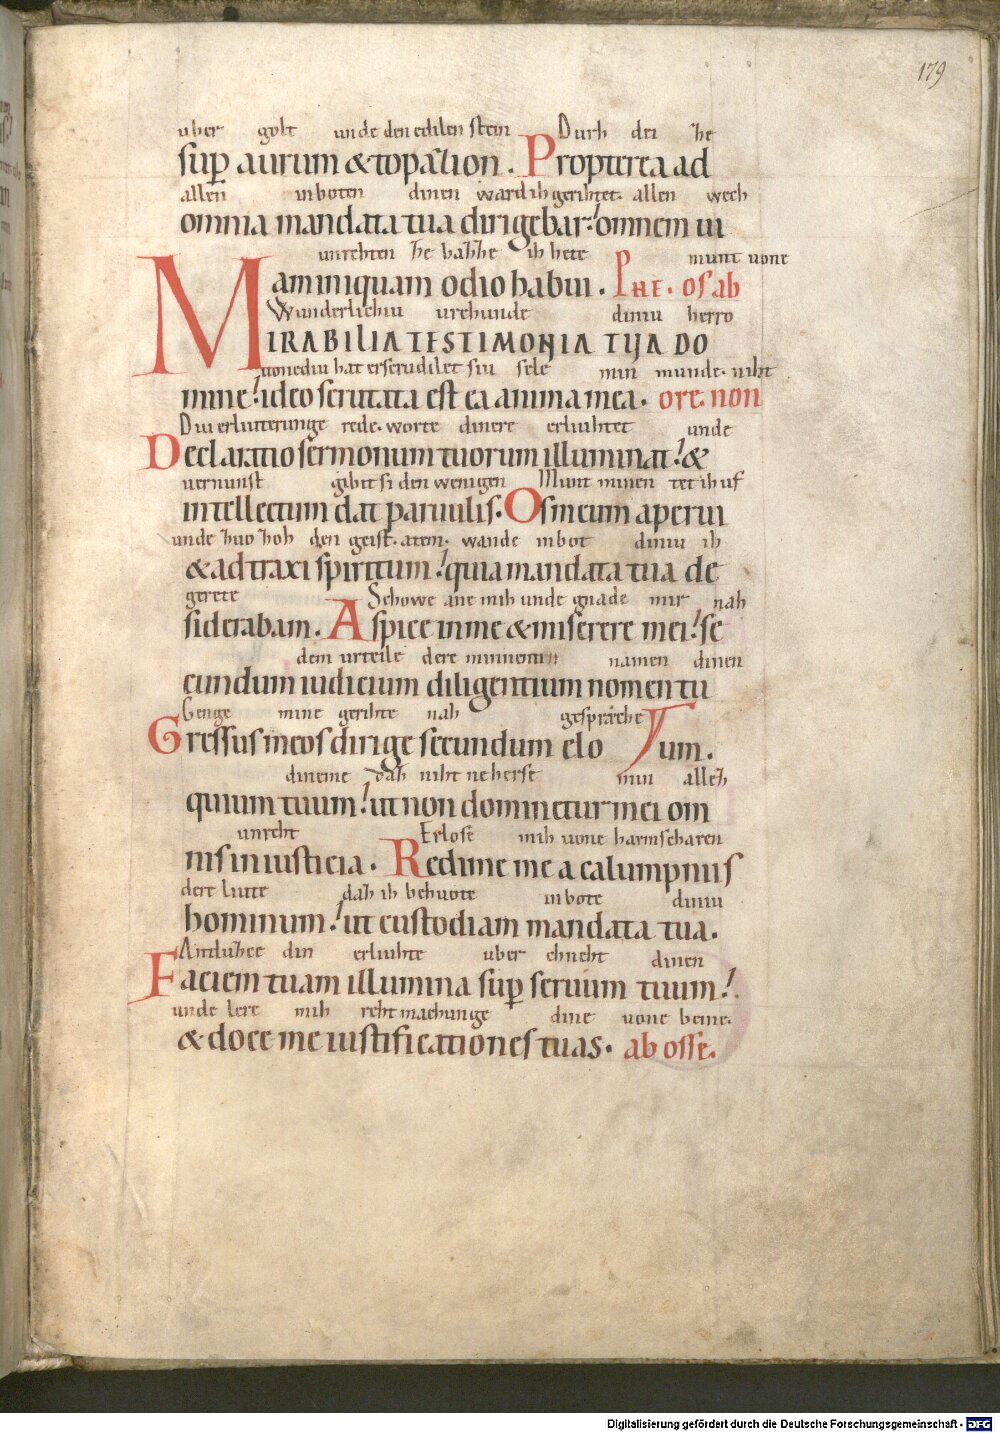 179
uber golt unde den edilen stein Durh dei ʒe
sup̄ aurum & topazion . Propterea ad
allen inboten dinen ward ih gerihtet. allen wech
omnia mandata tua dirigebar: omnem ui
unrehten ʒe haʒʒe ih hete munt uone
am iniquam odio habui . PHE . os ab
Wunderlichiu urchunde diniu herro
MIRABILIA TESTIMONIA TUA DO
uonediu hat erscrudilet siu sele min munde. niht
mine! ideo scrutata est ea anima mea . ore. non
Diu erluterunge rede. worte dinere erliuhtet unde
Declaratio sermonum tuorum illuminat! &
vernunst gibit si den wenigen Munt minen tet ih uf
intellectum dat paruulis. Os meum aperui
unde ʒuo ʒoh den geist. atem. wande inbot diniu ih
& adtraxi spiritum! quia mandata tua de
gerete Schowe ane mih unde gnade mir nah
siderabam . Aspice in me & miserere mei! se
dem urteile dere minnenten namen dinen
cundum iudicium diligentium nomen tu
Genge mine gerihte nah gespræche
Gressus meos dirige secundum elo um .
dineme daʒ niht neherse min alleʒ
quium tuum! ut non dominetur mei om
unreht Erlose mih uone harmscharen
nis iniusticia . Redime me a calumpniis
dere liute daʒ ih behuote inbote diniu
hominum! ut custodiam mandata tua .
Antluʒce din erliuhte uber chneht dinen
Faciem tuam illumina sup̄ seruum tuum!
unde lere mih rehtmachunge dine uone beine.
& doce me iustificationes tuas . ab osse.
Digitalisierung gefördert durch die Deutsche Forschungsgemeinschaft - DFG